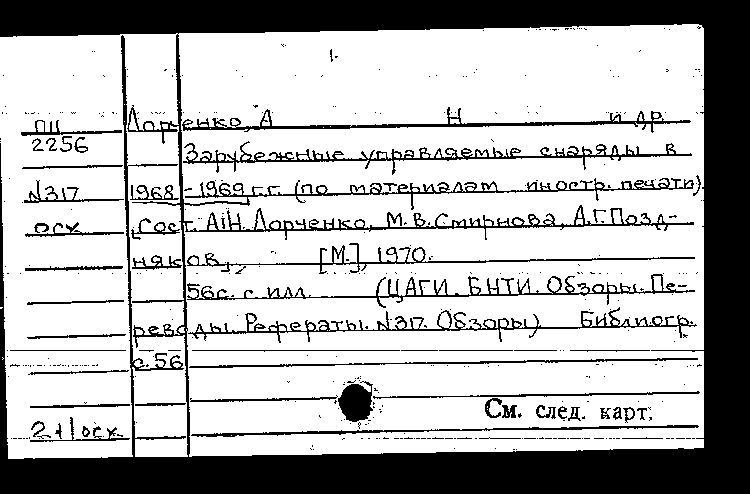 1.
ПЦ Лорченко, А Н и др
2256 Зарубежные управляемые снаряды в
N317 1968-1969 г.г. (по материалам иностр. печати)
осх [Сост. А.Н. Лорченко, М.В. Смирнова, А.Г. Позд-
няков], [М.], 1970.
56с. с илл. (ЦАГИ. БНТИ. Обзоры. Пе-
реводы. Рефераты. N317. Обзоры) Библиогр.
с. 56
См. след. карт.
2+1осх